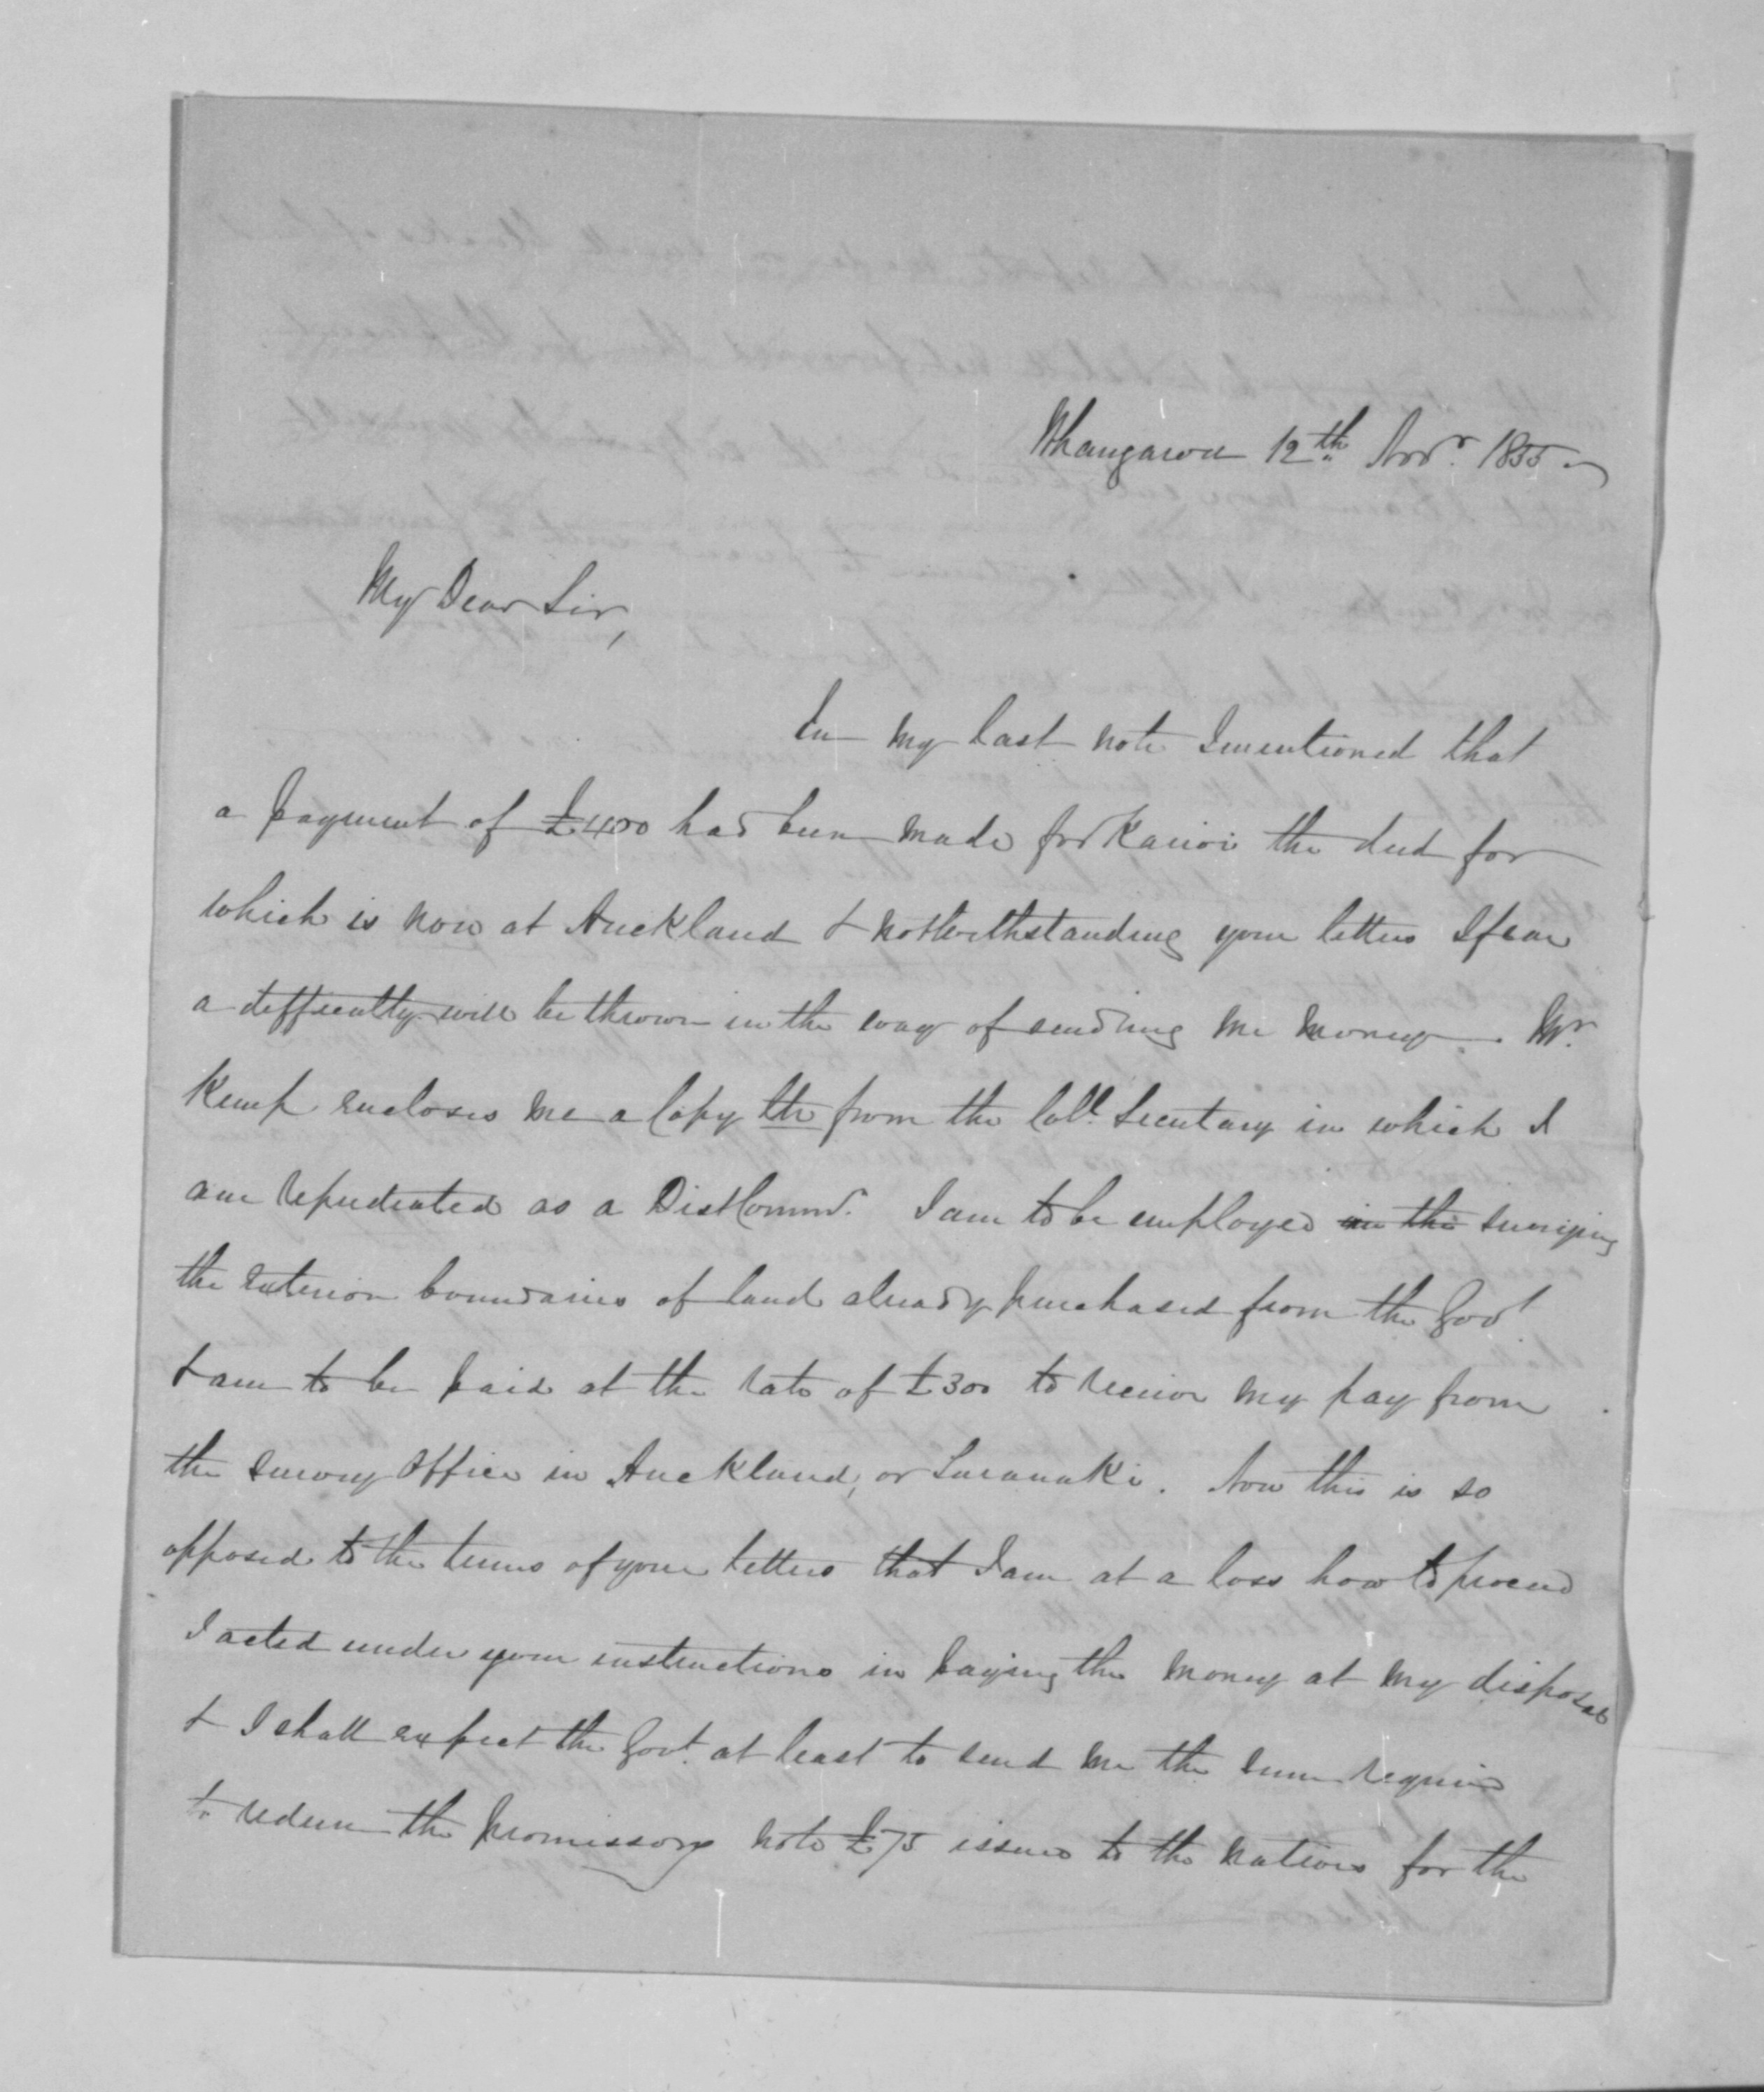 Whangaroa 12th Novr. 1855
My Dear Sir,
In my last note I mentioned that
a payment of £400 had been made for Karioi the deed for
which is now at Auckland & notwithstanding your letters I fear
a difficulty will be thrown in the way of sending me money. Mr.
Kemp encloses me a Copy ltr from the Coll. Secretary in which I
am repudiated as a Dist Commr. I am to be employed in the surveying
the exterior boundaries of land already purchased from the Govt
& am to be paid at the rate of £300 to receive my pay from
the Survey Office in Auckland, or Taranaki. Now this is so
opposed to the terms of your letters that I am at a loss how to proceed
I acted under your instructions in paying the money at my disposal
& I shall expect the Govt. at least to send me the sum required
to redeem the promissory note £75 issued to the natives for the